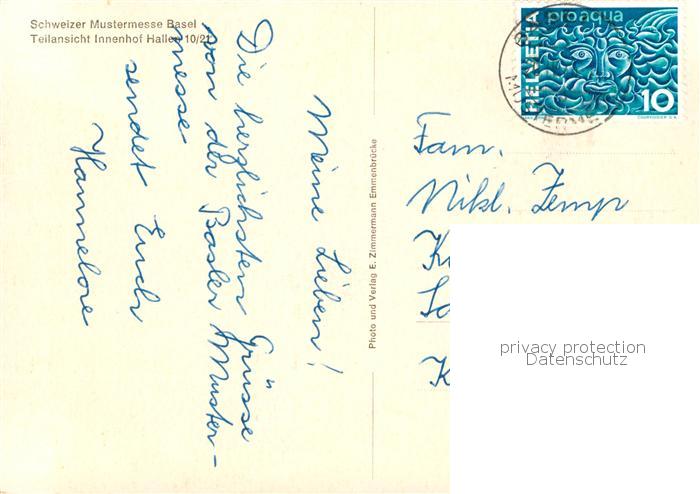 Schweizer Mustermesse Basel
Teilansicht Innenhof Hallen 10/21
Meine Lieben!
Die herzlichsten Grüsse
von der Basler Muster-
messe
sendet Euch
Hannelore
Photo und Verlag E. Zimmermann Emmenbrücke
HELVETIA
pro aqua
10
Fam.
Nikl. Zemp
K
privacy protection
Datenschutz